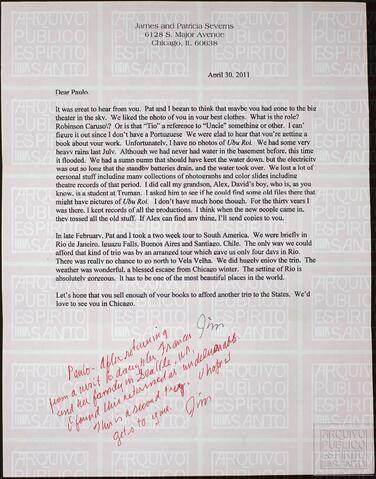 James and Patricia Severns
6128 S. Major Avenue
Chicago, IL 60638
April 30, 2011
Dear Paulo.
It was great to hear from you. Pat and I began to think that maybe you had gone to the big
theater in the sky. We liked the photo of you in your best clothes. What is the role?
Robinson Caruso\? Or is that "Tio" a reference to "Uncle" something or other. I can'
figure it out since I don't have a Portuguese We were glad to hear that you're setting a
book about your work. Unfortunately, I have no photos of Ubu Roi. We had some very
heavy rains last July. Although we had never had water in the basement before, this time
it flooded. We had a sump pump that should have kept the water down, but the electricity
was out so long that the standby batteries drain, and the water took over. We lost a lot of
personal stuff including many collections of photographs and color slides including
theatre records of that period. I did call my grandson, Alex, David's boy, who is, as you
know, is a student at Truman. I asked him to see if he could find some old files there that
might have pictures of Ubu Roi. I don't have much hope though. For the thirty years I
was there, I kept records of all the productions. I think when the new people came in,
they tossed all the old stuff. If Alex can find any thing, I'll send copies to you.
In late February, Pat and I took a two week tour to South America. We were briefly in
Rio de Janeiro, Iguazu Falls, Buenos Aires and Santiago, Chile. The only way we could
afford that kind of trip was by an arranged tour which gave us only four days in Rio.
There was really no chance to go north to Vela Velha. We did hugely enjoy the trip. The
weather was wonderful, a blessed escape from Chicago winter. The setting of Rio is
absolutely gorgeous. It has to be one of the most beautiful places in the world.
Let's hope that you sell enough of your books to afford another trip to the States. We'd
love to see you in Chicago.
Jim
Paulo - After returning
from a visit to daughter Frances
and her family in Seattle, WA,
I found this returned as undeliverable.
This is a second try. I hope it
gets to you. Jim
ARQUIVO
PÚBLICO
ESPÍRITO
SANTO